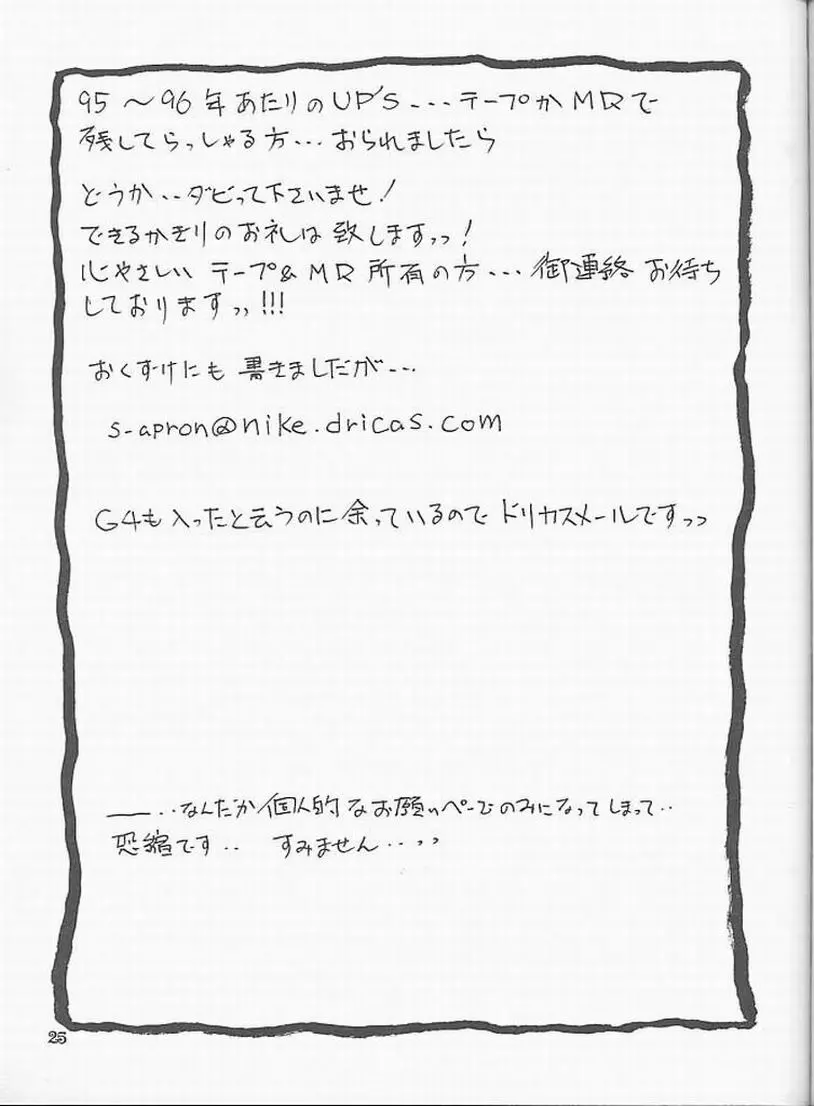 95～96年あたりのUP'S...テープかMDで
残してらっしゃる方...おられましたら
どうか..ダビって下さいませ!
できるかぎりのお礼は致しますっっ!
心やさしい テープ&MD所有の方...御連絡お待ち
しておりますっっ!!!
おくずけにも書きましたが...
s-apron@nike.dricas.com
G4も入ったと云うのに余っているのでドリカスメールですっっ
――..なんだか個人的なお願いぺーじのみになってしまって..
恐縮です.. すみません..っっ
25